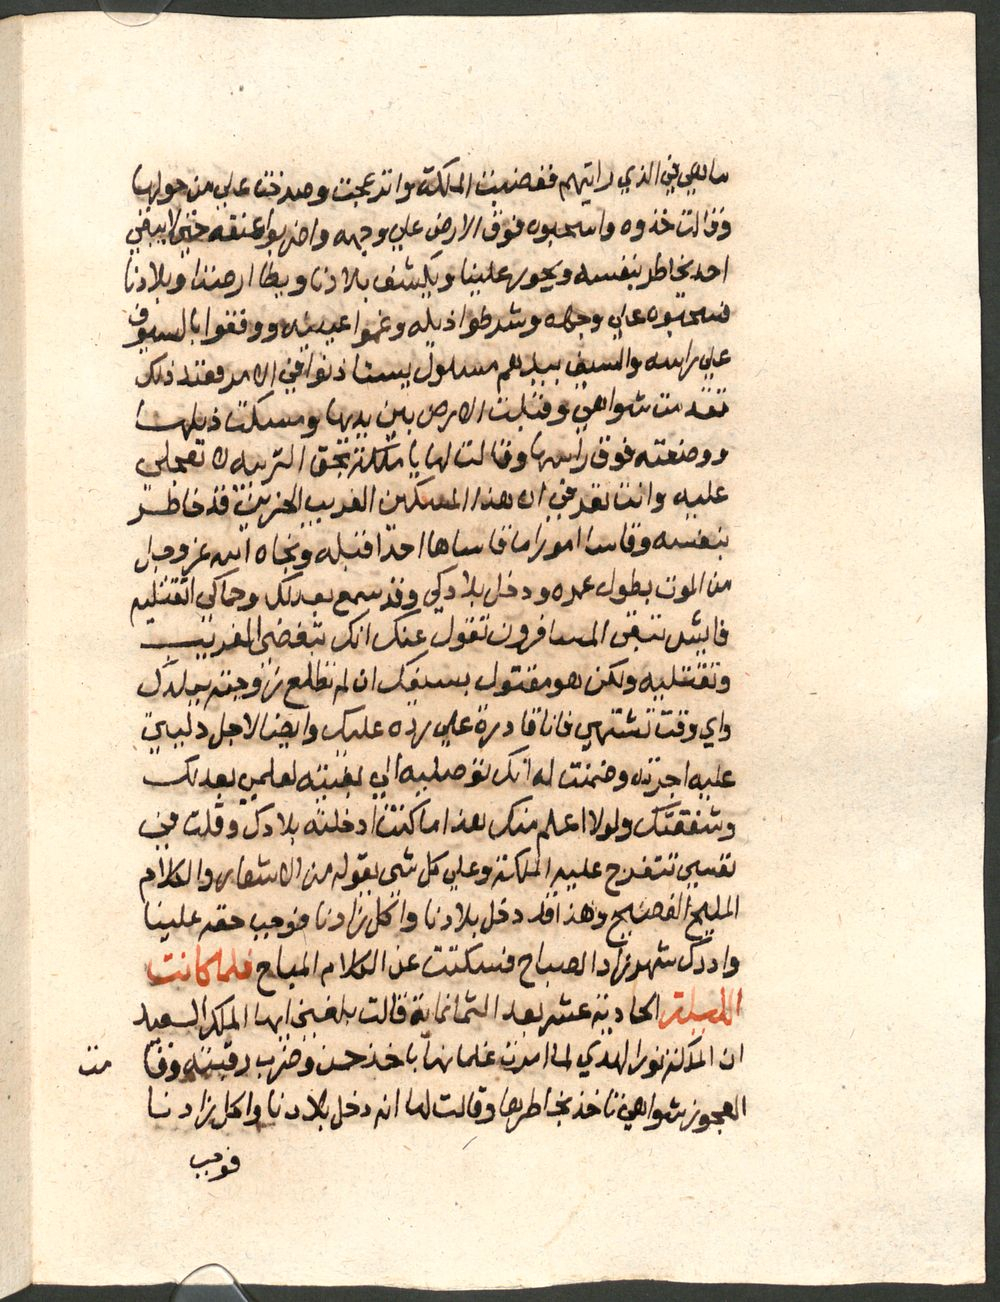 ما هي في الذي رايتهم فغضبت الملكة وانزعجت وصرخت علي من حولها
وقالت خذوه واسحبوه فوق الارض علي وجهه واضربوا عنقه حتي لا يبقي
احد يخاطر بنفسه ويجور علينا ويكشف بلادنا ويطا ارضنا وبلادنا
فسحبوه علي وجهه وشرطوا ذيله وغموا عينيه ووقفوا بالسيوف
علي راسه والسيف بيدهم مسلول يستاذنوا في الامر فعند ذلك
تقدمت شواهي وقبلت الارض بين يديها ومسكت ذيلها
ووضعته فوق راسها وقالت لها يا ملكة بحق التربيه لا تعجلي
عليه وانت تعرفي ان هذا المسكين الغريب الحزين قد خاطر
بنفسه وقاسا امورا ما قاساها احد قبله ونجاه الله عز وجل
من الموت بطول عمره ودخل بلادكي وقد سمع بعدلك وحماكي اتقتليه
فايش تبقي المسافرون تقول عنك انك تبغضي الغريب
وتقتليه ولكن هو مقتول بسيفك ان لم تطلع زوجته ببلدك
واي وقت تشتهي فانا قادرة علي رده عليك وايضا لاجل دلتي
عليه اجرته وضمنت له انك توصليه الي بغيته لعلمي بعدلك
وشفقتك ولولا اعلم منك هذا ما كنت ادخلته بلادك وقلت في
نفسي تتفرج عليه الملكة وعلي كل شي يقوله من الاشعار والكلام
المليح الفصيح وهذا قد دخل بلادنا واكل زادنا فوجب حقه علينا
وادرك شهرزاد الصباح فسكتت عن الكلام المباح فلما كانت
الليلة الحادية عشر بعد الثمانماية قالت بلغني ايها الملك السعيد
ان الملكة نور الهدي لما امرت غلمانها باخذ حسن وضرب رقبته وقا
مت
العجوز شواهي تاخذ بخاطرها وقالت لها انه دخل بلادنا واكل زادنا
فوجب